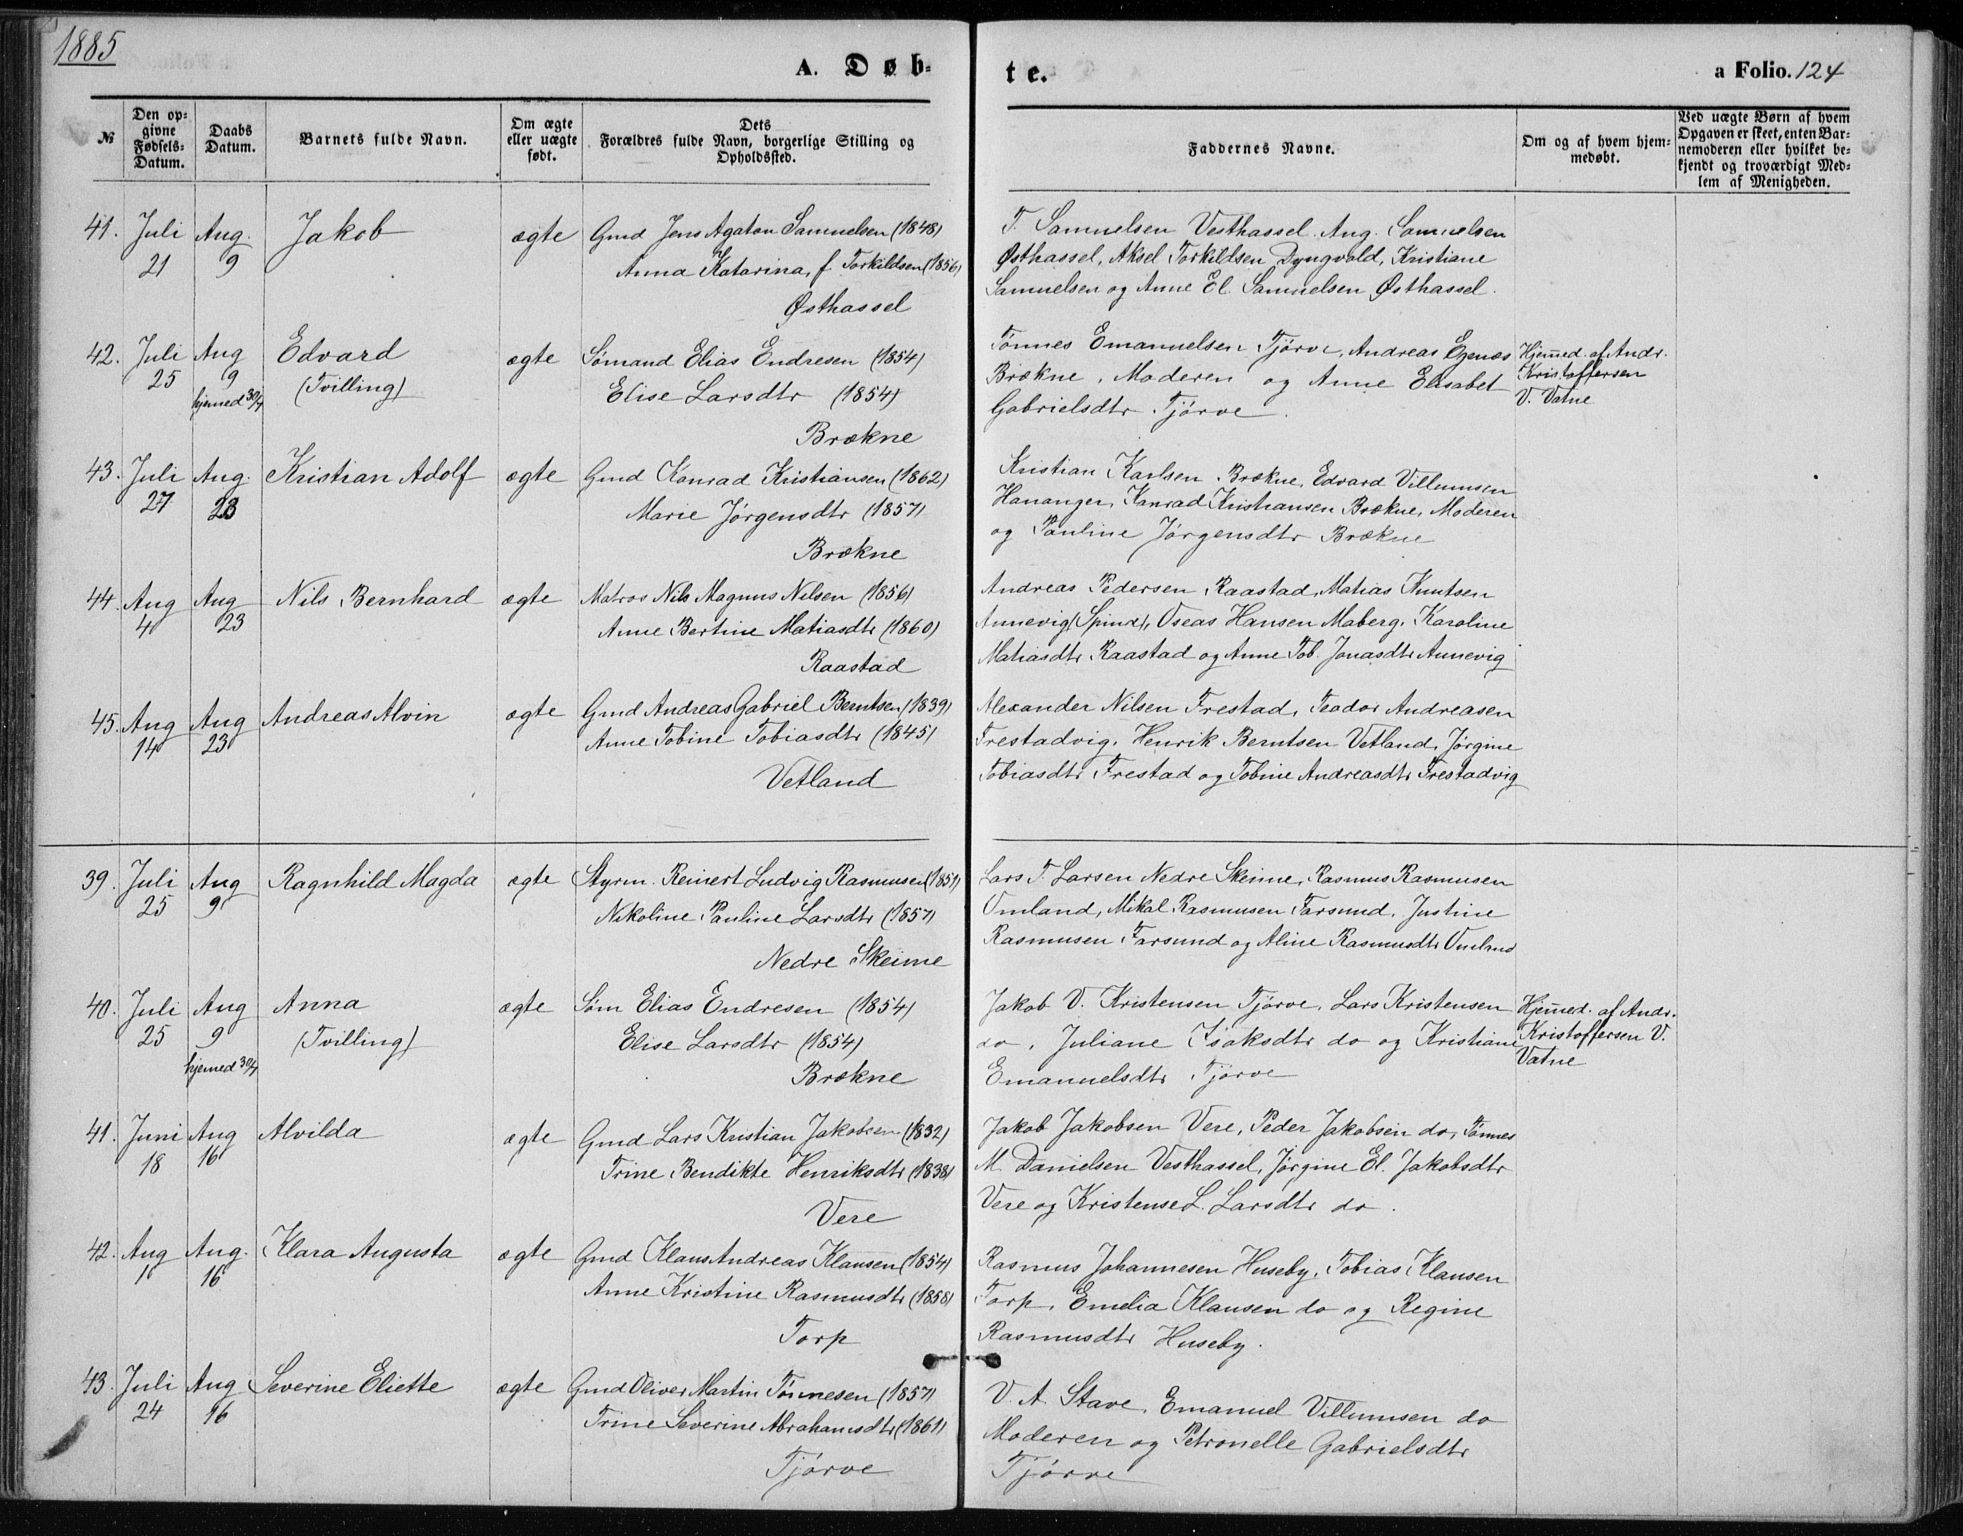 1885
A. Døb-
te.
a Folio. 124
№
Den op-
givne
Fødsels-
Datum.
Daabs
Datum.
Barnets fulde Navn.
Om ægte
eller uægte
født.
Dets
Forældres fulde Navn, borgerlige Stilling og
Opholdssted.
Faddernes Navne.
Om og af hvem hjem-
medøbt.
Ved uægte Børn af hvem
Opgaven er skeet, enten Bar-
nemoderen eller hvilket be-
kjendt og troværdigt Med-
lem af Menigheden.
41. Juli 21 Aug. 9 Jakob ægte Gmd Jens Agaton Samuelsen (1848)
Anna Katarina, f. Torkildsen (1856)
Østhassel
T. Samuelsen Vesthassel. Aug. Samuelsen
Østhassel, Aksel Torkildsen Dyngvold, Kristiane
Samuelsen og Anne El. Samuelsen Østhassel.
42. Juli 25 Aug 9 hjemed 30/7 Edvard (Tvilling) ægte Sømand Elias Endresen (1854)
Elise Larsdtr (1854)
Brækne
Tønnes Emanuelsen Tjørve, Andreas Egenæs
Brækne, Moderen og Anne Elisabet
Gabrielsdtr Tjørve.
Hjemed. af Andr.
Kristoffersen
V. Vatne
43. Juli 27 Aug. 23 Kristian Adolf ægte Gmd Konrad Kristiansen (1862)
Marie Jørgensdtr (1857)
Brækne
Kristian Karlsen Brækne, Edvard Villumsen
Hananger, Konrad Kristiansen Brækne, Moderen
og Pauline Jørgensdtr Brækne
44. Aug 4 Aug 23 Nils Bernhard ægte Matros Nils Magnus Nilsen (1856)
Anne Bertine Matiasdtr (1860)
Raastad
Andreas Pedersen Raastad, Matias Knutsen
Annevig (Spind), Oseas Hansen Maberg, Karoline
Matiasdtr Raastad og Anne Tob. Jonasdtr Annevig
45. Aug 14 Aug 23 Andreas Alvin ægte Gmd Andreas Gabriel Berntsen (1839)
Anne Tobine Tobiasdtr (1845)
Vetland
Alexander Nilsen Frestad, Teodor Andreasen
Frestadvig, Henrik Berntsen Vetland, Jørgine
Tobiasdtr Frestad og Tobine Andreasdtr Frestadvig
39. Juli 25 Aug 9 Ragnhild Magda ægte Styrm. Reinert Ludvig Rasmusen (1851)
Nikoline Pauline Larsdtr (1857)
Nedre Skeime
Lars T. Larsen Nedre Skeime, Rasmus Rasmusen
Omland, Mikal Rasmusen Farsund, Justine
Rasmusen Farsund og Aline Rasmusdtr Omland
40. Juli 25 Aug 9 hjemed 30/7 Anna (Tvilling) ægte Søm Elias Endresen (1854)
Elise Larsdtr (1854)
Brækne
Jakob V. Kristensen Tjørve, Lars Kristensen
do, Juliane Isaksdtr do og Kristiane
Emanuelsdtr Tjørve
Hjemed. af Andr.
Kristoffersen V.
Vatne
41. Juni 18 Aug 16 Alvilda ægte Gmd Lars Kristian Jakobsen (1832)
Trine Bendikte Henriksdtr (1838)
Vere
Jakob Jakobsen Vere, Peder Jakobsen do, Tønnes
M. Danielsen Vesthassel, Jørgine El. Jakobsdtr
Vere og Kristense L. Larsdtr do.
42. Aug 1 Aug. 16 Klara Augusta ægte Gmd Klaus Andreas Klausen (1854)
Anne Kristine Rasmusdtr (1858)
Torp
Rasmus Johannesen Huseby, Tobias Klausen
Torp, Emelia Klausen do og Regine
Rasmusdtr Huseby.
43. Juli 24 Aug 16 Severine Eliette ægte Gmd Oliver Martin Tønnesen (1857)
Trine Severine Abrahamsdtr (1861)
Tjørve
V. A. Stave, Emanuel Villumsen do
Moderen og Petronelle Gabrielsdtr
Tjørve